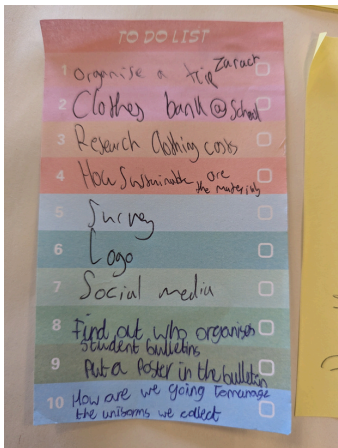 TO DO LIST
1 Organise a trip Zurach
2 Clothes bank @ School
3 Research Clothing costs
4 How Sustainable are
the materials
5 Survey
6 Logo
7 Social media
8 Find out who organises
student bulletins
9 Put a Poster in the bulletin
10 How are we going to manage
the uniforms we collect